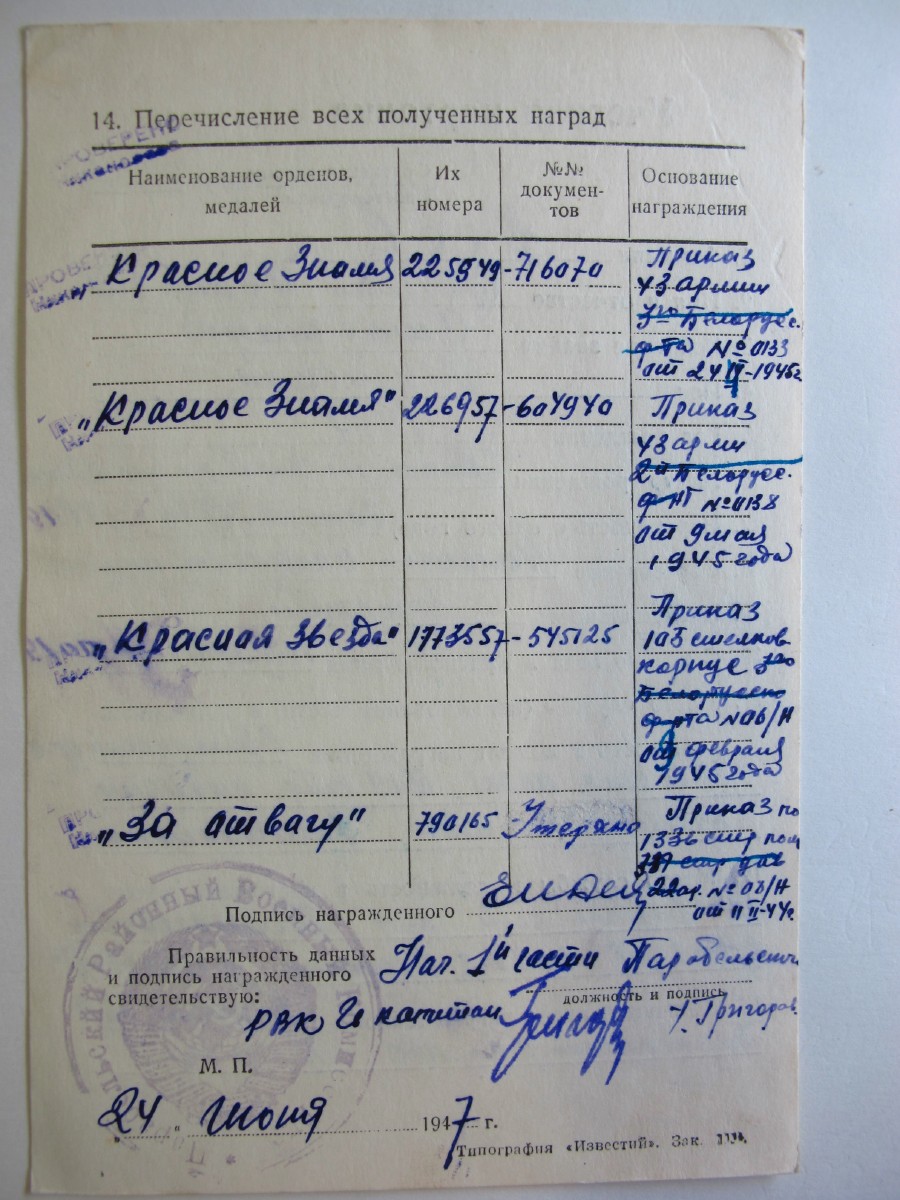 14. Перечисление всех полученных наград
ПРОВЕРЕНО
Наименование орденов,
медалей
Их
номера
№№
докумен-
тов
Основание
награждения
„Красное Знамя 225949-716070
Приказ
43 армии
3го Белорус.
фрта № 0133
от 24 IV-1945г
„Красное Знамя" 226957-604940
Приказ
43 арми
2й Белорус.
фНТ № 0138
от 9 мая
1945 года
„Красная Звезда" 1773557-545125
Приказ
103 стрелков
корпус 3го
Белорусско
фрта № 06/Н
февраля
1945 года
„За отвагу" 790165 Утеряно
Приказ по
1336 стр пол
№ 03/Н
от 11 II-44г.
Подпись награжденного
Правильность данных
и подпись награжденного
свидетельствую:
Нач. 1й части Парабельского
должность и подпись
РВК Г капитан
Григоров
М. П.
„24 " Июня 1947 г.
Типография «Известий». Зак.
Районный Военный